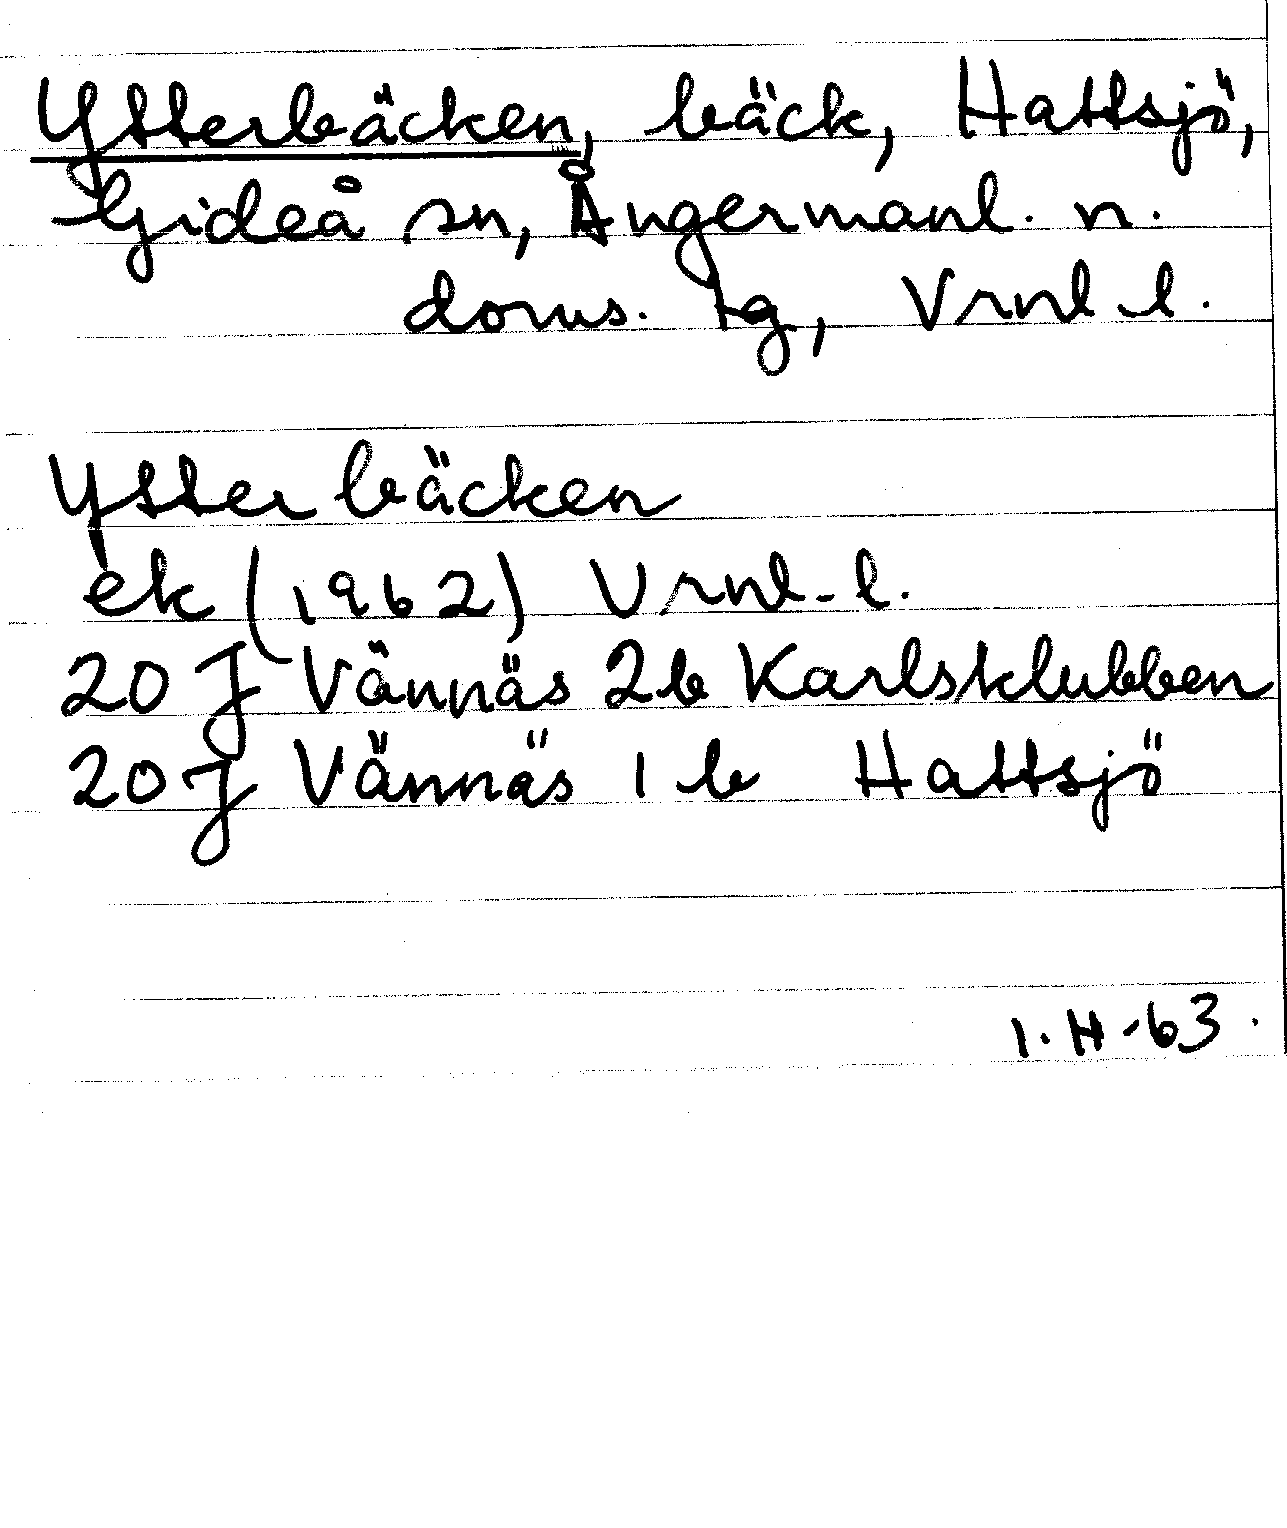 Ytterbäcken, bäck, Hattsjö,
Gideå sn, Ångermanl. n.
doms. tg, Vrnl l.
Ytterbäcken
ek (1962) Vrnl-l.
20 J Vännäs 2b Karlsklubben
20 J Vännäs 1 b Hattsjö
I. H-63.